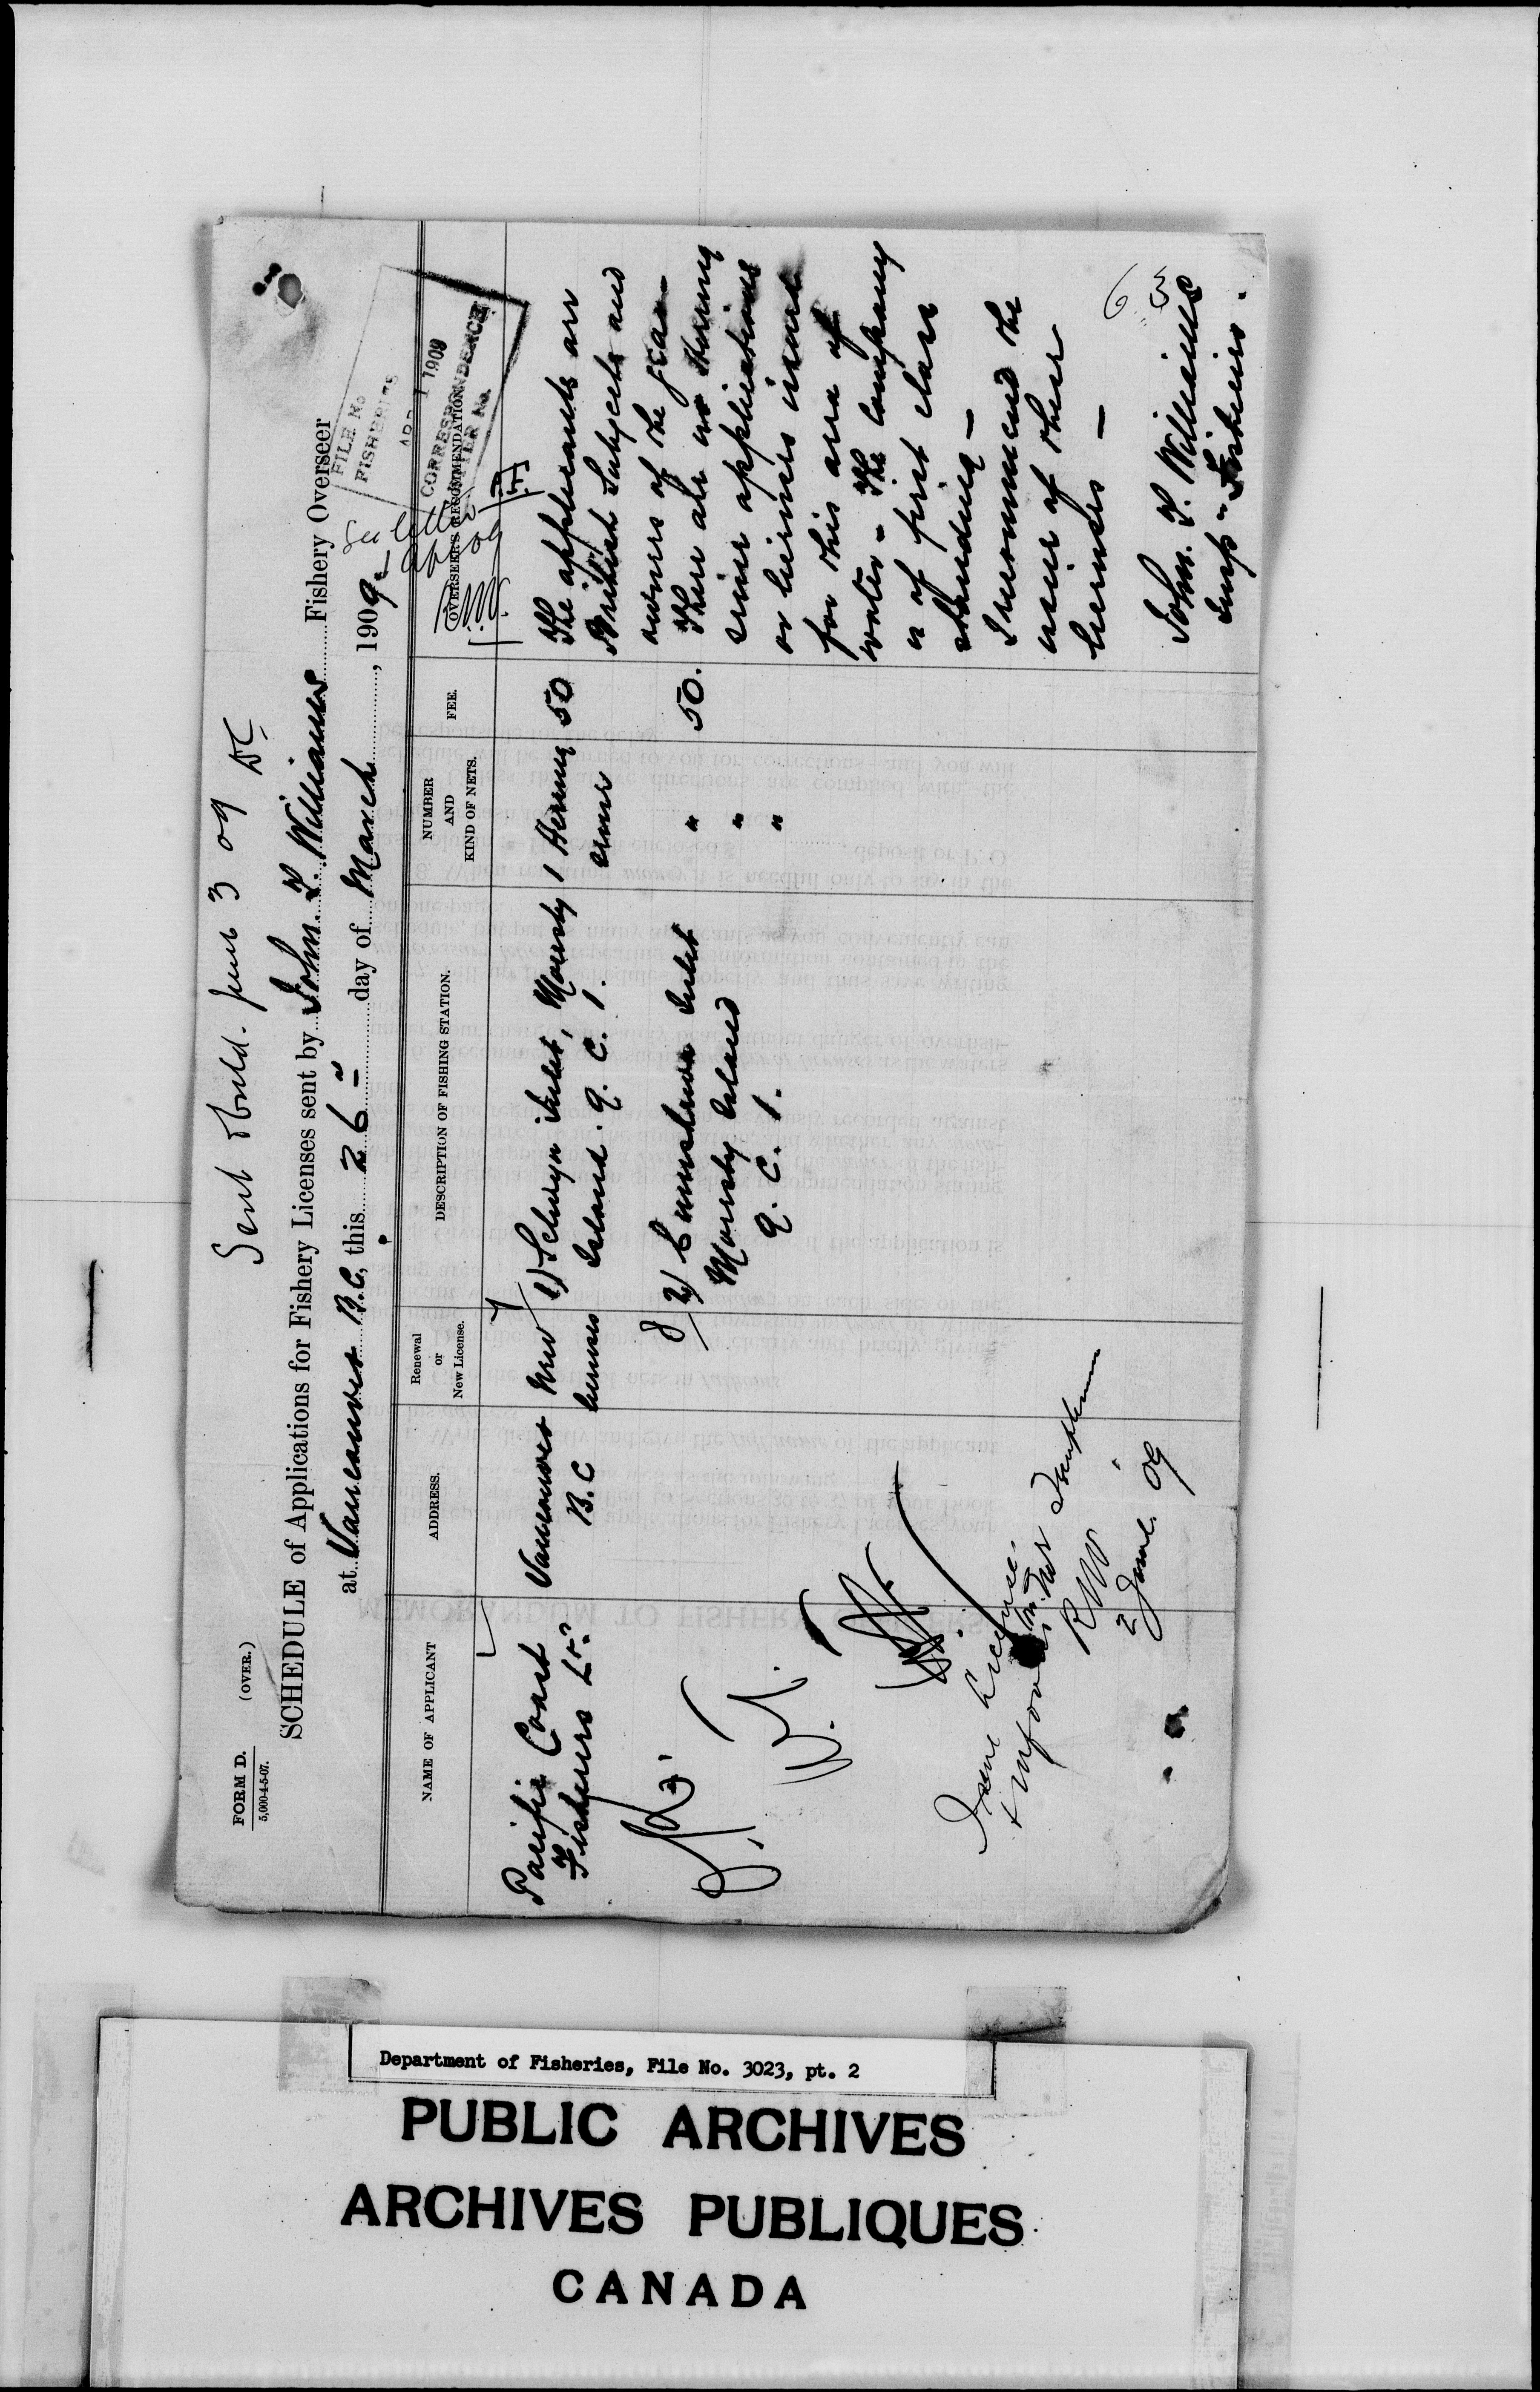 Sent Buld. June 3 09
FORM D.
5,000-4-5-07.
(OVER.)
SCHEDULE of Applications for Fishery Licenses sent by John. T. Williams Fishery Overseer
at Vancouver B.C, this 26" day of March, 1909
FILE No
FISHERIES
APR 1 1909
CORRESPONDENCE
LETTER No.
See letter
NAME OF APPLICANT
ADDRESS.
Renewal
or
New License.
DESCRIPTION OF FISHING STATION.
NUMBER
AND
KIND OF NETS.
FEE.
OVERSEER'S RECOMMENDATION
Pacific Coast
Fisheries Ltd
Vancouver
B.C
New
licenses
1) Selwyn Inlet, Moresby
Island. Q. C. I.
1 Herring
seine
50
8
2) Cumshewa Inlet
Moresby Island
Q. C. I.
"
"
"
50.
The applicants are
British Subjects and
owners of the gear -
There are no herring
seine applications
or licenses issued
for this area of
water - The Company
is of first class
standing -
I recommend the
issue of these
licenses -
John. T. Williams
Insp - Fisheries.
63
Issue license.
RNV
2 June. 09
Department of Fisheries, File No. 3023, pt. 2
PUBLIC ARCHIVES
ARCHIVES PUBLIQUES
CANADA